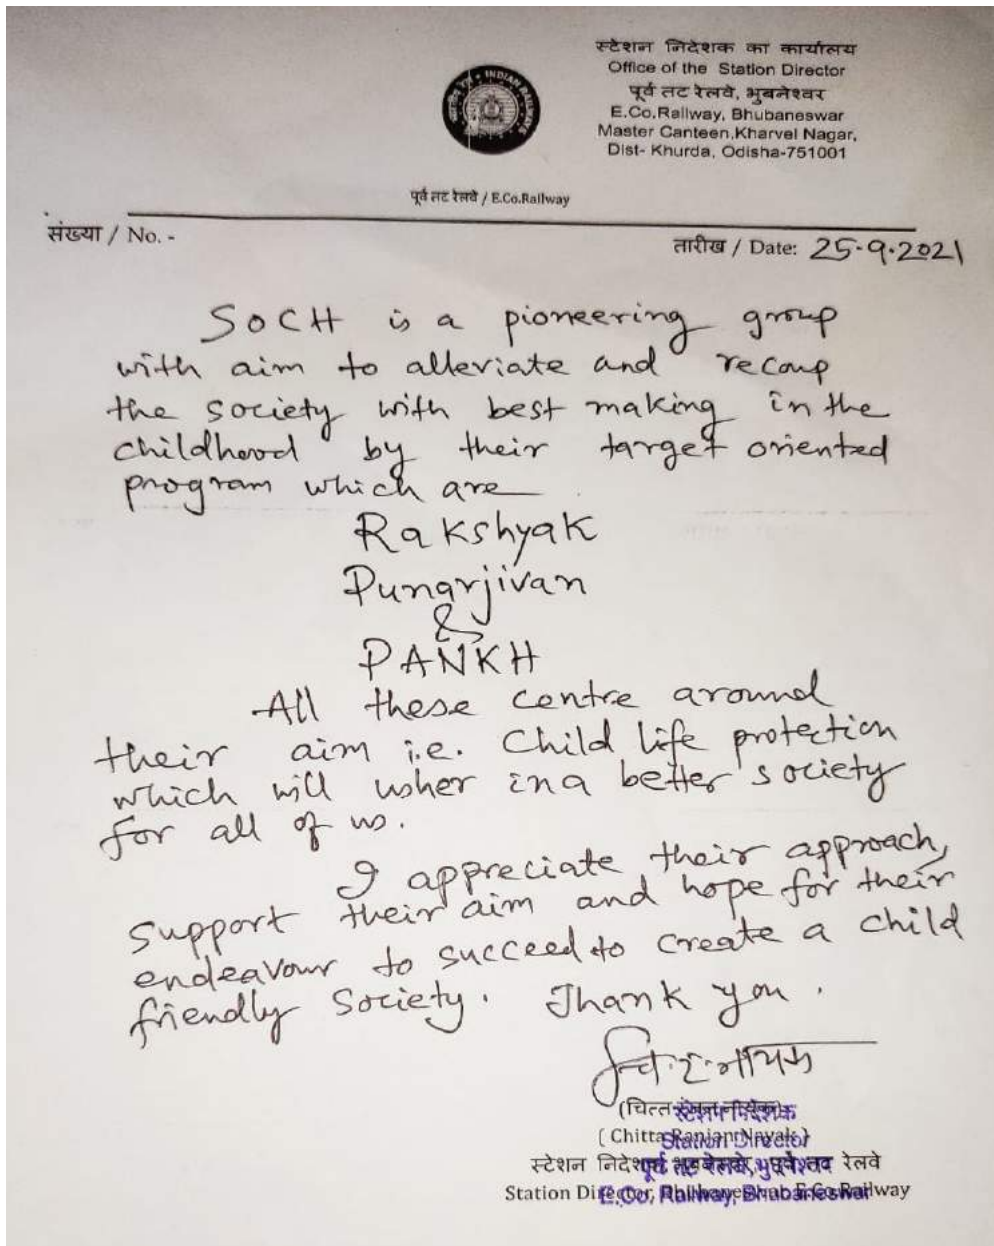 स्टेशन निदेशक का कार्यालय
Office of the Station Director
पूर्व तट रेलवे, भुबनेश्वर
E.Co.Railway, Bhubaneswar
Master Canteen,Kharvel Nagar,
Dist- Khurda, Odisha-751001
INDIAN RAILWAYS
पूर्व तट रेलवे / E.Co.Railway
संख्या / No. -
तारीख / Date: 25-9-2021
SOCH is a pioneering group
with aim to alleviate and recoup
the society with best making in the
childhood by their target oriented
program which are
Rakshyak
Punarjivan
&
PANKH
All these centre around
their aim i.e. Child life protection
which will usher in a better society
for all of us.
I appreciate their approach,
support their aim and hope for their
endeavour to succeed to create a child
friendly society. Thank you.
चि.रं.नायक
(चित्त रंजन नायक)
स्टेशन निदेशक
(Chitta Ranjan Nayak)
Station Director
स्टेशन निदेशक, भुबनेश्वर, पूर्व तट रेलवे
पूर्व तट रेलवे, भुबनेश्वर
Station Director, Bhubaneswar, E.Co.Railway
E.Co. Railway, Bhubaneswar